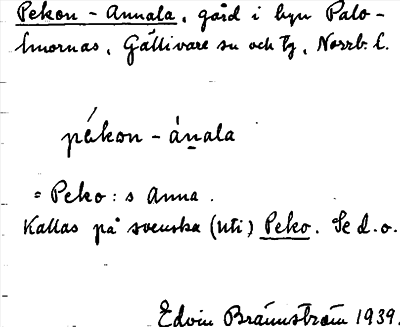 Pekon-Annala, gård i byn Palo-
lmornas, Gällivare sn och tg, Norrb. l.
pékon-ánala
= Peko:s Anna.
Kallas på svenska (uti) Peko. Se d.o.
Edvin Brännström 1939.